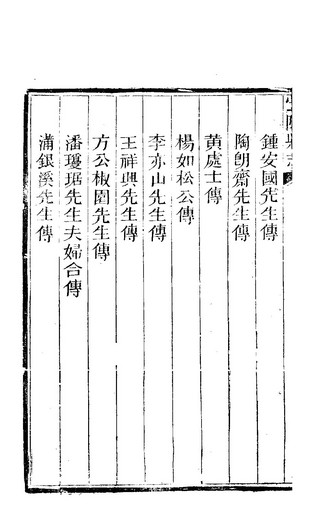 鍾安國先生傳
陶朗齋先生傳
黃處士傳
楊如松公傳
李亦山先生傳
王祥興先生傳
方公椒園先生傳
潘瓊琚先生夫婦合傳
蒲銀溪先生傳